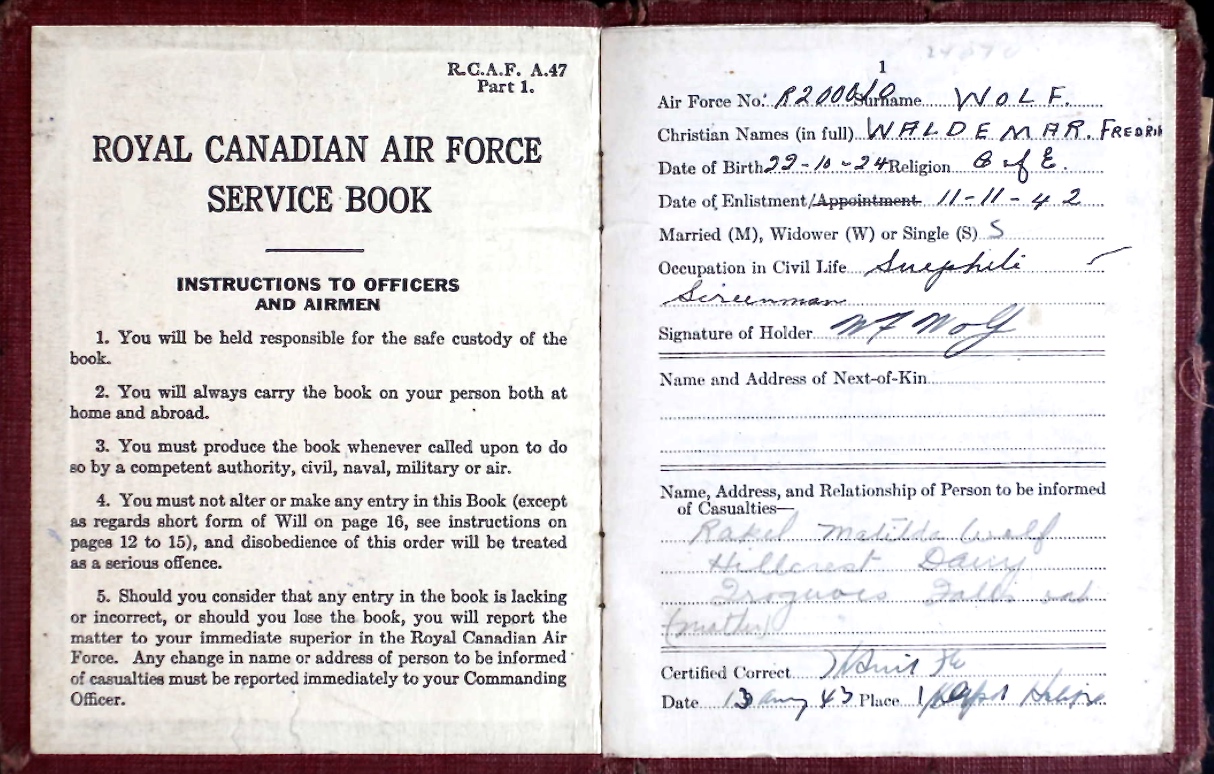 R.C.A.F. A.47
Part 1.
ROYAL CANADIAN AIR FORCE
SERVICE BOOK
INSTRUCTIONS TO OFFICERS
AND AIRMEN
1. You will be held responsible for the safe custody of the
book.
2. You will always carry the book on your person both at
home and abroad.
3. You must produce the book whenever called upon to do
so by a competent authority, civil, naval, military or air.
4. You must not alter or make any entry in this Book (except
as regards short form of Will on page 16, see instructions on
pages 12 to 15), and disobedience of this order will be treated
as a serious offence.
5. Should you consider that any entry in the book is lacking
or incorrect, or should you lose the book, you will report the
matter to your immediate superior in the Royal Canadian Air
Force. Any change in name or address of person to be informed
of casualties must be reported immediately to your Commanding
Officer.
1
Air Force No. Surname WOLF.
Christian Names (in full) WALDEMAR. FREDRIK
Date of Birth 22-10-24 Religion C of E.
Date of Enlistment/Appointment 11-11-42
Married (M), Widower (W) or Single (S) S
Occupation in Civil Life Sulphite
Screenman
Signature of Holder W F Wolf
Name and Address of Next-of-Kin
Name, Address, and Relationship of Person to be informed
of Casualties—
Rakel Matilda Wolf
Hillcrest Dairy
Iroquois Falls Ont
(mother)
Certified Correct
Date 43 Place Halifax